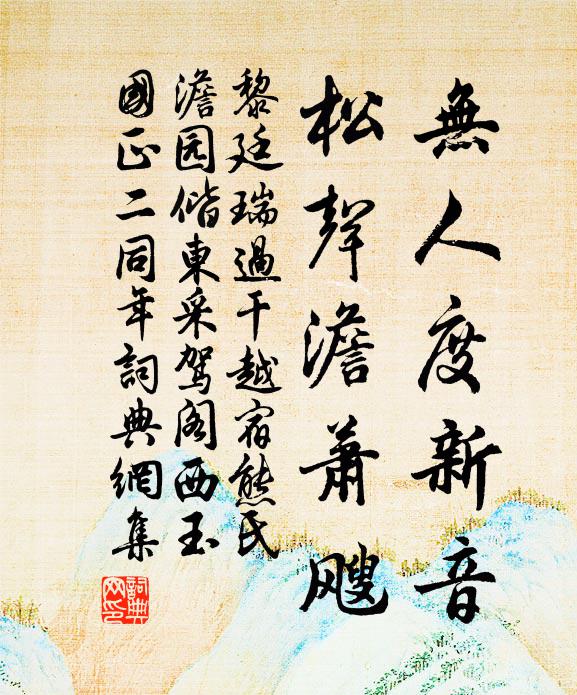 無人度新音
松聲澹蕭飕
黎廷瑞過干越宿熊氏
澹园偕東采驾阁西玉
國正二同年詞典網集
詞典网印